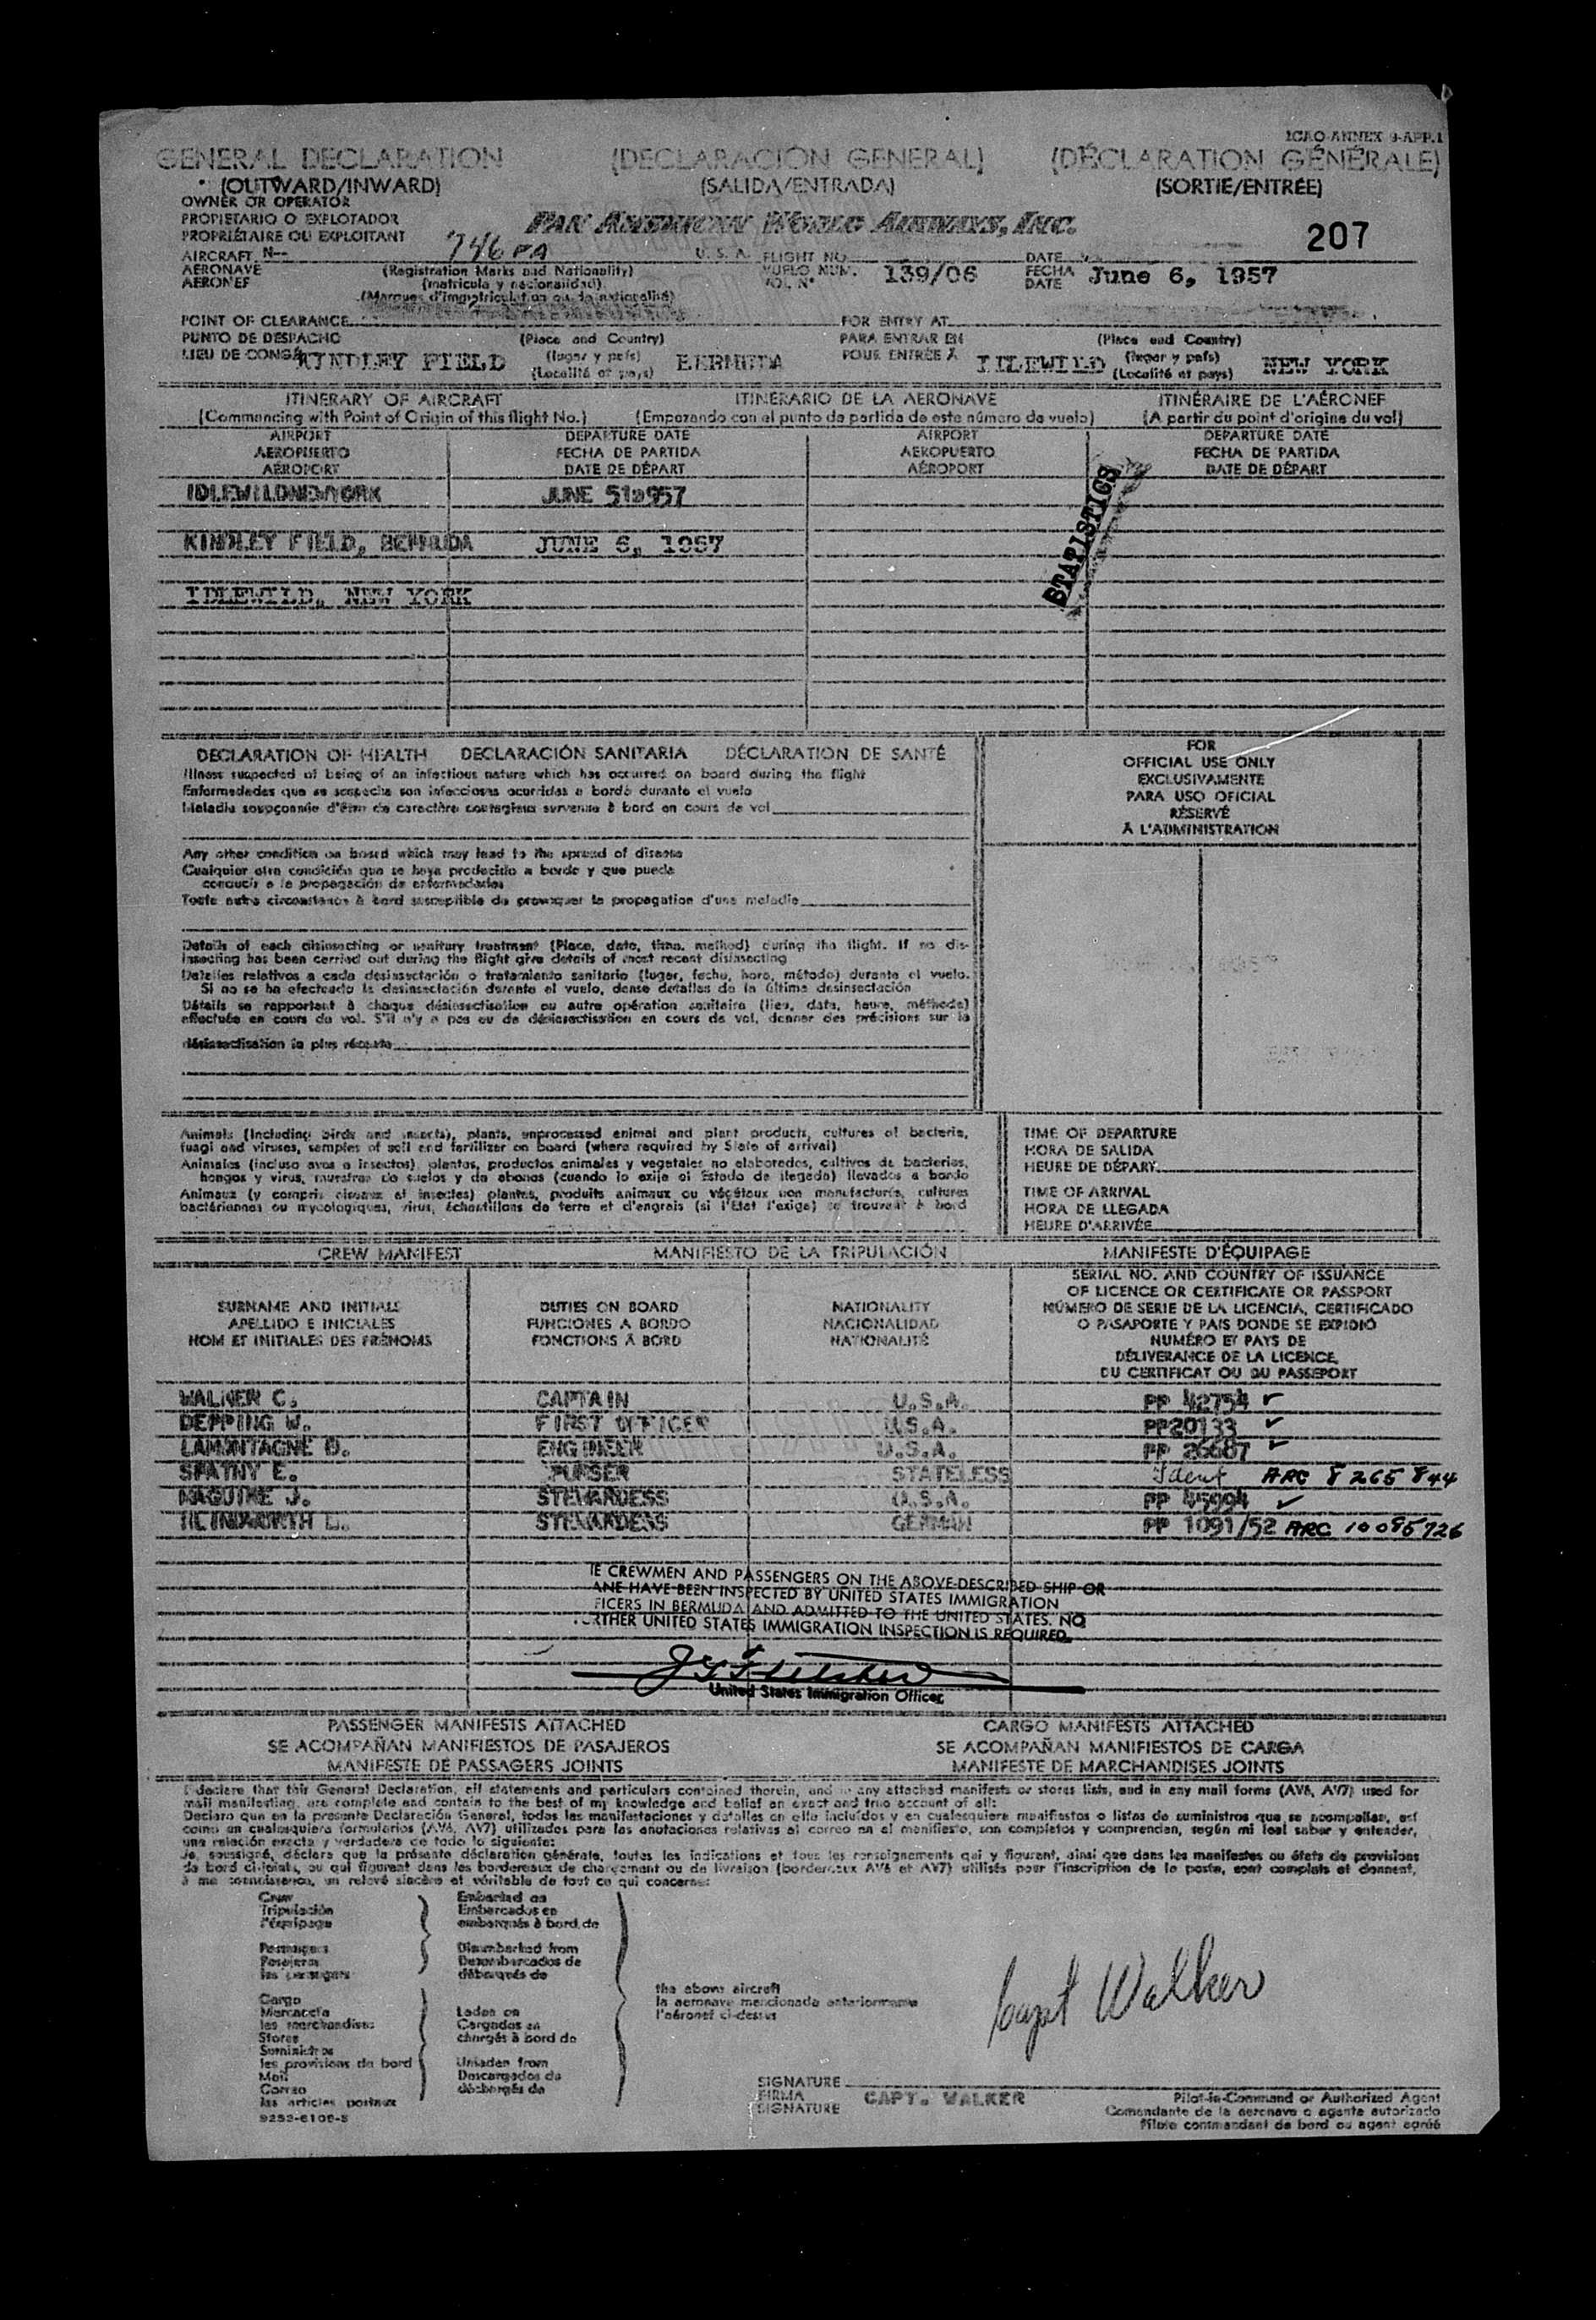 ICAO ANNEX 9-APP.1
GENERAL DECLARATION (DECLARACIÓN GENERAL) (DÉCLARATION GÉNÉRALE)
(OUTWARD/INWARD) (SALIDA/ENTRADA) (SORTIE/ENTRÉE)
OWNER OR OPERATOR
PROPIETARIO O EXPLOTADOR
PROPRIÉTAIRE OU EXPLOITANT
PAN AMERICAN WORLD AIRWAYS, INC.
207
AIRCRAFT N-- 746 PA U. S. A. FLIGHT NO. DATE
AERONAVE (Registration Marks and Nationality) VUELO NUM. 139/06 FECHA June 6, 1957
AERONEF (matrícula y nacionalidad) VOL Nº DATE
(Marques d'immatriculation ou de nationalité)
POINT OF CLEARANCE FOR ENTRY AT
PUNTO DE DESPACHO (Place and Country) PARA ENTRAR EN (Place and Country)
LIEU DE CONGÉ KINDLEY FIELD (lugar y país) BERMUDA POUR ENTRÉE À IDLEWILD (lugar y país) NEW YORK
(Localité et pays) (Localité et pays)
ITINERARY OF AIRCRAFT ITINERARIO DE LA AERONAVE ITINÉRAIRE DE L'AÉRONEF
(Commencing with Point of Origin of this flight No.) (Empezando con el punto de partida de este número de vuelo) (A partir du point d'origine du vol)
AIRPORT DEPARTURE DATE AIRPORT DEPARTURE DATE
AEROPUERTO FECHA DE PARTIDA AEROPUERTO FECHA DE PARTIDA
AÉROPORT DATE DE DÉPART AÉROPORT DATE DE DÉPART
STATISTICS
IDLEWILDNEWYORK JUNE 51957
KINDLEY FIELD, BERMUDA JUNE 6, 1957
IDLEWILD, NEW YORK
DECLARATION OF HEALTH DECLARACIÓN SANITARIA DÉCLARATION DE SANTÉ
Illness suspected of being of an infectious nature which has occurred on board during the flight
Enfermedades que se sospecha son infecciosas ocurridas a bordo durante el vuelo
Maladie soupçonnée d'être de caractère contagieux survenue à bord en cours de vol
Any other condition on board which may lead to the spread of disease
Cualquier otra condición que se haya producido a bordo y que pueda
conducir a la propagación de enfermedades
Toute autre circonstance à bord susceptible de provoquer la propagation d'une maladie
Details of each disinsecting or sanitary treatment (Place, date, time, method) during the flight. If no dis-
insecting has been carried out during the flight give details of most recent disinsecting
Detalles relativos a cada desinsectación o tratamiento sanitario (lugar, fecha, hora, método) durante el vuelo.
Si no se ha efectuado la desinsectación durante el vuelo, dense detalles de la última desinsectación
Détails se rapportant à chaque désinsectisation ou autre opération sanitaire (lieu, date, heure, méthode)
effectuée en cours de vol. S'il n'y a pas eu de désinsectisation en cours de vol, donner des précisions sur la
désinsectisation la plus récente
FOR
OFFICIAL USE ONLY
EXCLUSIVAMENTE
PARA USO OFICIAL
RÉSERVÉ
À L'ADMINISTRATION
Animals (Including birds and insects), plants, unprocessed animal and plant products, cultures of bacteria,
fungi and viruses, samples of soil and fertilizer on board (where required by State of arrival)
Animales (incluso aves e insectos) plantas, productos animales y vegetales no elaborados, cultivos de bacterias,
hongos y virus, muestras de suelos y de abonos (cuando lo exija el Estado de llegada) llevados a bordo
Animaux (y compris oiseaux et insectes) plantes, produits animaux ou végétaux non manufacturés, cultures
bactériennes ou mycologiques, virus, échantillons de terre et d'engrais (si l'État l'exige) se trouvant à bord
TIME OF DEPARTURE
HORA DE SALIDA
HEURE DE DÉPART
TIME OF ARRIVAL
HORA DE LLEGADA
HEURE D'ARRIVÉE
CREW MANIFEST MANIFIESTO DE LA TRIPULACIÓN MANIFESTE D'ÉQUIPAGE
SURNAME AND INITIALS DUTIES ON BOARD NATIONALITY
APELLIDO E INICIALES FUNCIONES A BORDO NACIONALIDAD
NOM ET INITIALES DES PRÉNOMS FONCTIONS À BORD NATIONALITÉ
SERIAL NO. AND COUNTRY OF ISSUANCE
OF LICENCE OR CERTIFICATE OR PASSPORT
NÚMERO DE SERIE DE LA LICENCIA, CERTIFICADO
O PASAPORTE Y PAIS DONDE SE EXPIDIÓ
NUMÉRO ET PAYS DE
DÉLIVERANCE DE LA LICENCE,
DU CERTIFICAT OU DU PASSEPORT
WALKER C. CAPTAIN U.S.A. PP 42754 ✓
DEPPING W. FIRST OFFICER U.S.A. PP20133 ✓
LAMONTAGNE D. ENGINEER U.S.A. PP 26687 ✓
SPATNY E. PURSER STATELESS Ident ARC 8 265 844
MAGUIRE J. STEWARDESS U.S.A. PP 45994 ✓
STEWARDESS GERMAN PP 1091/52 ARC 10 095 726
IE CREWMEN AND PASSENGERS ON THE ABOVE-DESCRIBED SHIP OR
ANE HAVE BEEN INSPECTED BY UNITED STATES IMMIGRATION
FICERS IN BERMUDA AND ADMITTED TO THE UNITED STATES. NO
URTHER UNITED STATES IMMIGRATION INSPECTION IS REQUIRED.
United States Immigration Officer
PASSENGER MANIFESTS ATTACHED CARGO MANIFESTS ATTACHED
SE ACOMPAÑAN MANIFIESTOS DE PASAJEROS SE ACOMPAÑAN MANIFIESTOS DE CARGA
MANIFESTE DE PASSAGERS JOINTS MANIFESTE DE MARCHANDISES JOINTS
I declare that this General Declaration, all statements and particulars contained therein, and in any attached manifests or stores lists, and in any mail forms (AV6, AV7) used for
mail manifesting, are complete and contain to the best of my knowledge and belief an exact and true account of all:
Declaro que en la presente Declaración General, todas las manifestaciones y detalles en ella incluídos y en cualesquiera manifiestos o listas de suministros que se acompañan, así
como en cualesquiera formularios (AV6, AV7) utilizados para las anotaciones relativas al correo en el manifiesto, son completos y comprenden, según mi leal saber y entender,
una relación exacta y verdadera de todo lo siguiente:
Je, soussigné, déclare que la présente déclaration générale, toutes les indications et tous les renseignements qui y figurent, ainsi que dans les manifestes ou états de provisions
de bord ci-joints, ou qui figurent dans les bordereaux de chargement ou de livraison (bordereaux AV6 et AV7) utilisés pour l'inscription de la poste, sont complets et donnent,
à ma connaissance, un relevé sincère et véritable de tout ce qui concerne:
Crew Embarked on
Tripulación Embarcados en
l'équipage embarqués à bord de
Passengers Disembarked from
Pasajeros Desembarcados de
les passagers débarqués de
the above aircraft
la aeronave mencionada anteriormente
l'aéronef ci-dessus
Cargo
Mercancía Laden on
les marchandises Cargados en
Stores chargés à bord de
Suministros
les provisions de bord Unladen from
Mail Descargados de
Correo déchargés de
les articles postaux
9252-6106-S
Capt Walker
SIGNATURE
FIRMA CAPT. WALKER
SIGNATURE
Pilot-in-Command or Authorized Agent
Comandante de la aeronave o agente autorizado
Pilote commandant de bord ou agent agréé